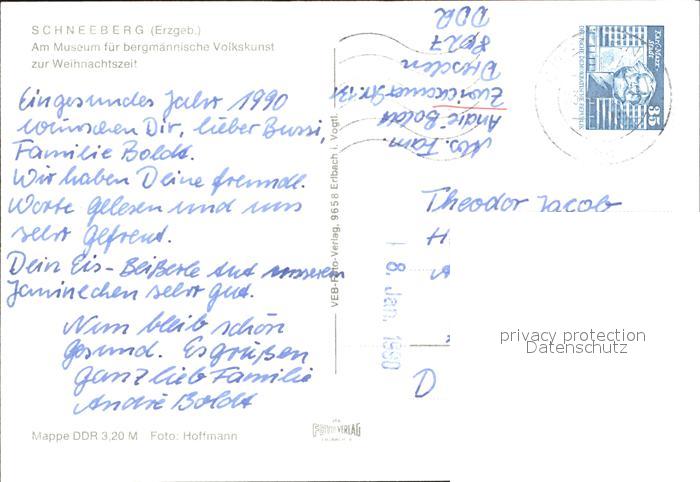 SCHNEEBERG (Erzgeb.)
Am Museum für bergmännische Volkskunst
zur Weihnachtszeit
Ein gesundes Jahr 1990
wünschen Dir, lieber Bussi,
Familie Boldt.
Wir haben Deine freundl.
Worte gelesen und uns
sehr gefreut.
Dein Eis- Beißerle tut unserem
Janinechen sehr gut.
Nun bleib schön
gesund. Es grüßen
ganz lieb Familie
André Boldt
Mappe DDR 3,20 M Foto: Hoffmann
VEB-Foto-Verlag, 9658 Erlbach i. Vogtl.
FOTO VERLAG
Abs. Fam.
André Boldt
Zwickauer Str. 131
Dresden
8027
DDR
Karl-Marx-Stadt
DEUTSCHE DEMOKRATISCHE REPUBLIK
35
Theodor Jacob
H
18. Jan. 1990
D
privacy protection
Datenschutz